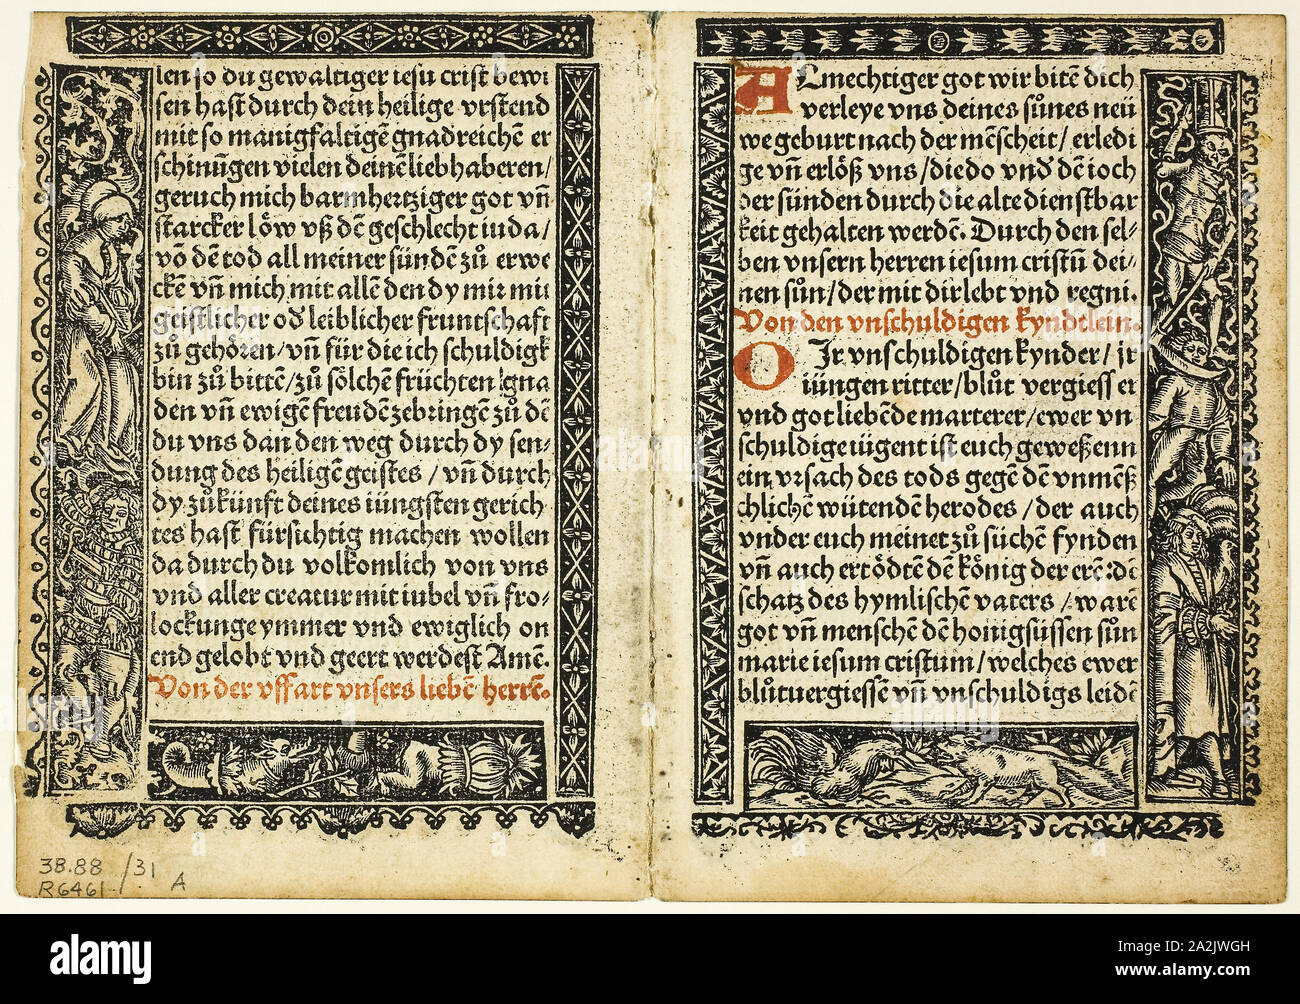 len so du gewaltiger iesu crist bewi
sen hast durch dein heilige vrstend
mit so manigfaltigē gnadreichē er
schinūgen vielen deinē liebhaberen/
geruch mich barmhertziger got vñ
starcker löw vß dē geschlecht iuda/
vō dē tod all meiner sündē zů erwe
ckē vñ mich mit allē den dy mir mit
geistlicher od leiblicher fruntschaft
zů gehören/vñ für die ich schuldigk
bin zů bittē/zů sölchē früchten gna
den vñ ewigē freudē zebringē zů dē
du vns dan den weg durch dy sen-
dung des heiligē geistes/vñ durch
dy zůkünft deines iüngsten gerich
tes hast fürsichtig machen wollen
da durch du volkomlich von vns
vnd aller creatur mit iubel vñ fro-
lockunge ymmer vnd ewiglich on
end gelobt vnd geert werdest Amē.
Von der vffart vnsers liebē herrē.
38.88 /31
R6461 A
ALmechtiger got wir bitē dich
verleye vns deines sůnes neü
we geburt nach der mēscheit/erledi
ge vñ erlöß vns/die do vnd dē ioch
der sünden durch die alte dienstbar
keit gehalten werdē. Durch den sel-
ben vnsern herren iesum cristū dei-
nen sůn/der mit dir lebt vnd regni.
Von den vnschuldigen kyndelein.
O Ir vnschuldigen kynder/ir
iüngen ritter/blůt vergiess er
vnd got liebēde marterer/ewer vn
schuldige iügent ist euch geweßenn
ein vrsach des tods gegē dē vnmēß
chlichē wütendē herodes/der auch
vnder euch meinet zů süchē fynden
vñ auch ertödtē dē könig der erē:dē
schatz des hymlischē vaters/warē
got vñ menschē dē honigsüssen sůn
marie iesum cristum/welches ewer
blůtuergiessē vñ vnschuldigs leidē
alamy
Image ID: 2A2JWGH
www.alamy.com